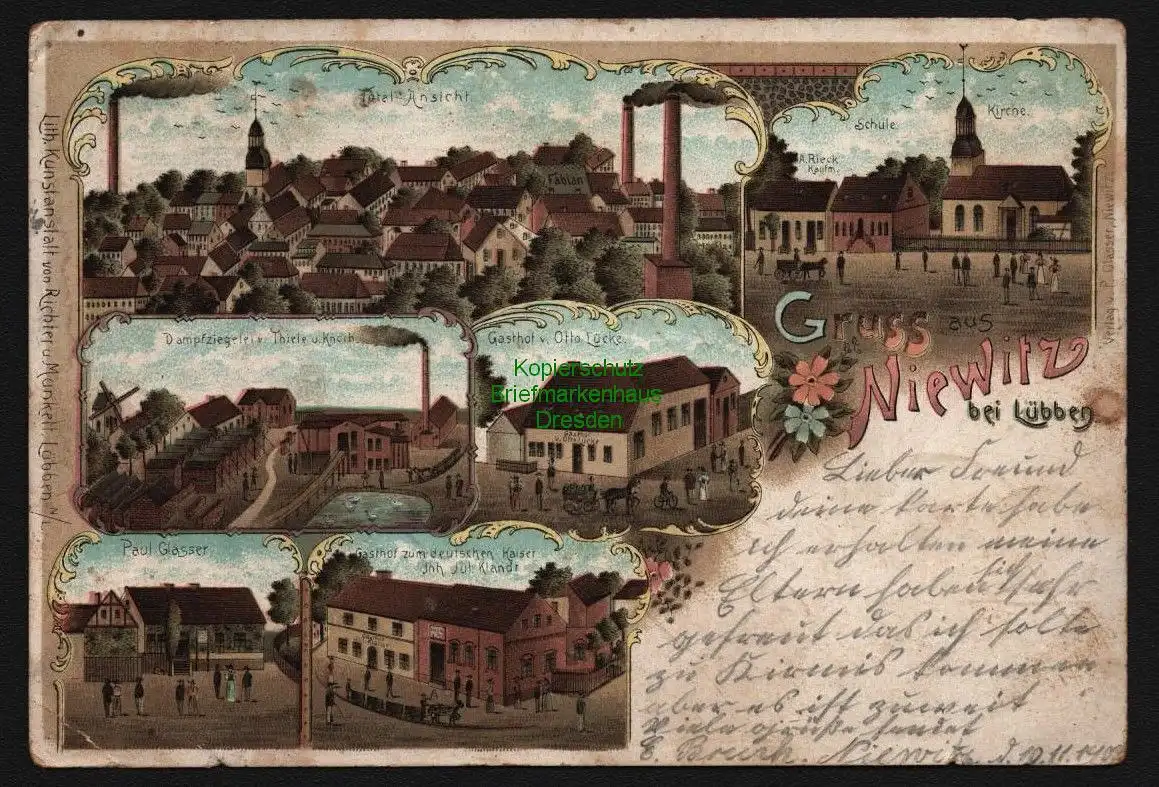 Total-Ansicht
Fabian
Schule.
Kirche.
A. Rieck
Kaufm.
Lith. Kunstanstalt von Richter u. Munkelt, Lübben N/L.
Verlag v. P. Glasser, Niewitz
Gruss aus
Niewitz
bei Lübben
Dampfziegelei v. Thiele u. Knorh.
Gasthof v. Otto Lücke.
Gasthof
v. Otto Lücke
Kopierschutz
Briefmarkenhaus
Dresden
Paul Glasser
Gasthof zum deutschen Kaiser
Inh. Jul. Klandt
Lieber Freund
deine Karte habe
ich erhalten meine
Eltern haben sich sehr
gefreut das ich sollte
zu Kirmis kommen
aber es ist zuweit
Viele grüße sendet
Niewitz d. 10.11.